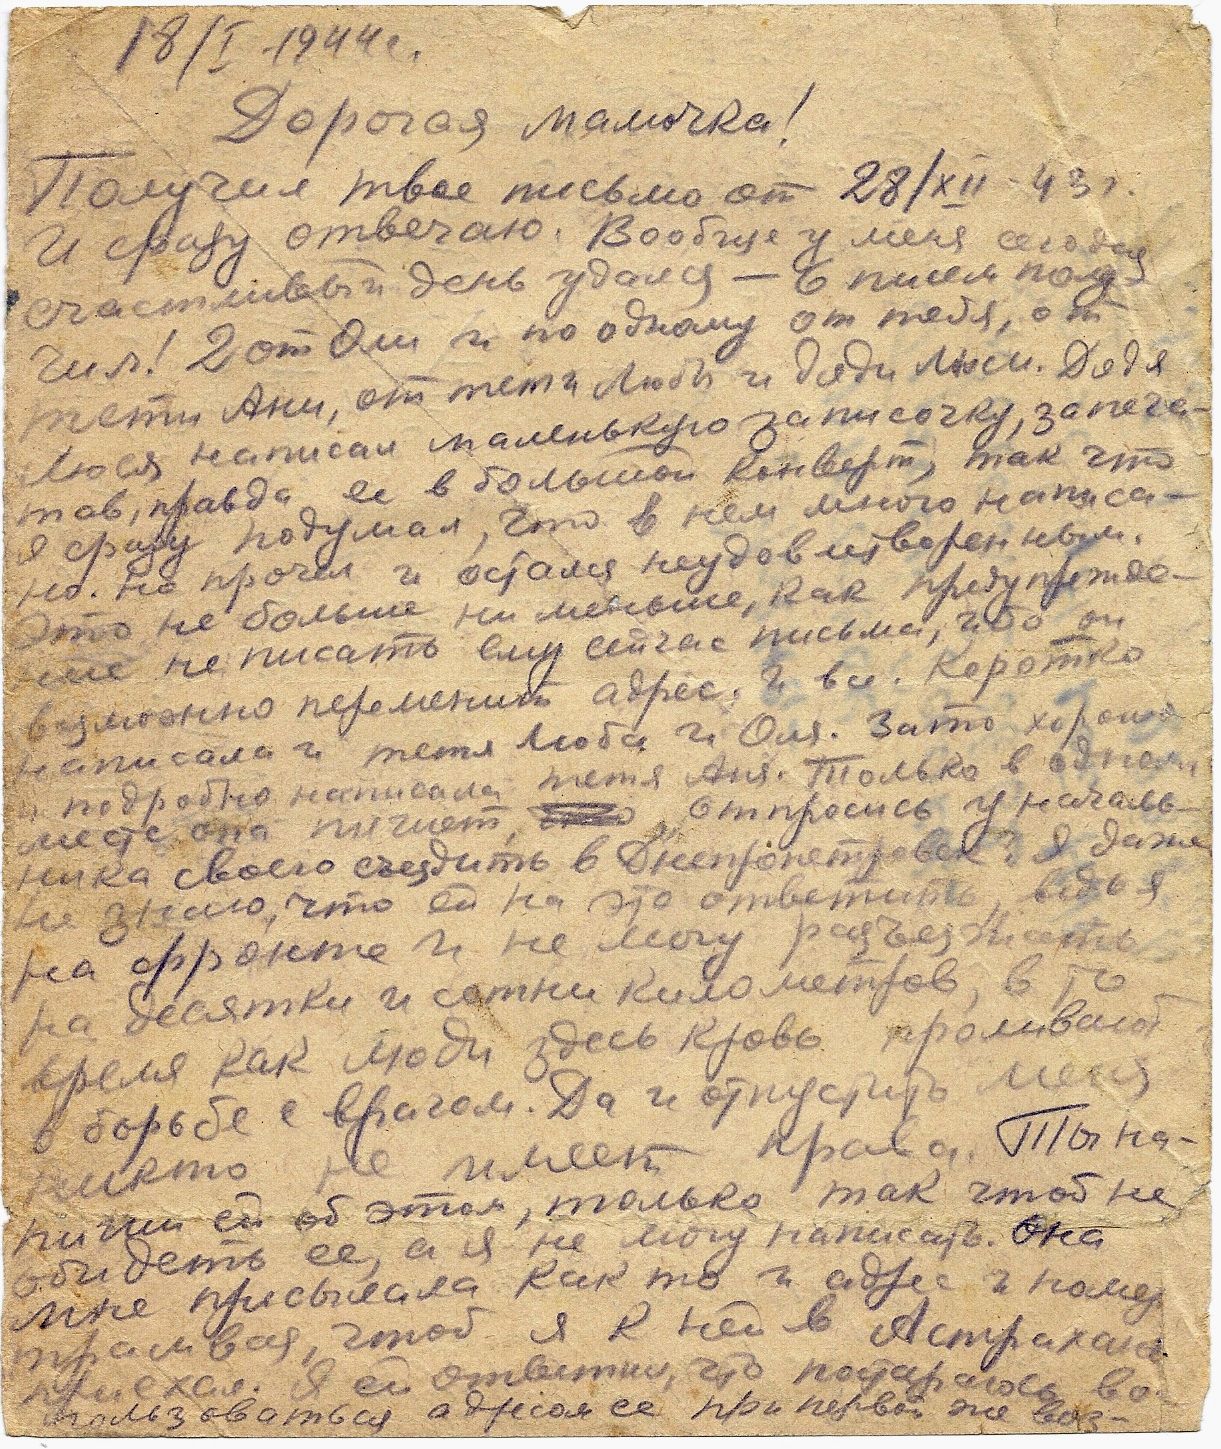 18/I 1944г.
Дорогая мамочка!
Получил твое письмо от 28/XII-43г.
И сразу отвечаю. Вообще у меня сегодня
счастливый день удался — 6 писем полу-
чил! 2 от Оли и по одному от тебя, от
тети Ани, от тети Любы и дяди Люси. Дядя
Люся написал маленькую записочку, запеча-
тав, правда ее в большой конверт, так что
я сразу подумал, что в нем много написа-
но. Но прочел и остался неудовлетворенным.
Это не больше ни меньше, как предупрежде-
ние не писать ему сейчас письма, ибо он
возможно переменит адрес. И все. Коротко
написала и тетя Люба и Оля. Зато хорошо
и подробно написала тетя Аня. Только в одном
месте она пишет, „отпросись у началь-
ника своего съездить в Днепропетровск". Я даже
не знаю, что ей на это ответить, ведь я
на фронте и не могу разъезжать
на десятки и сотни километров, в то
время как люди здесь кровь проливают
в борьбе с врагом. Да и отпустить меня
никто не имеет права. Ты на-
пиши ей об этом, только так чтоб не
обидеть ее, а я не могу написать. Она
мне присылала как то и адрес и номер
трамвая, чтоб я к ней в Астрахань
приехал. Я ей ответил, что постараюсь вос-
пользоваться адресом ее при первой же воз-